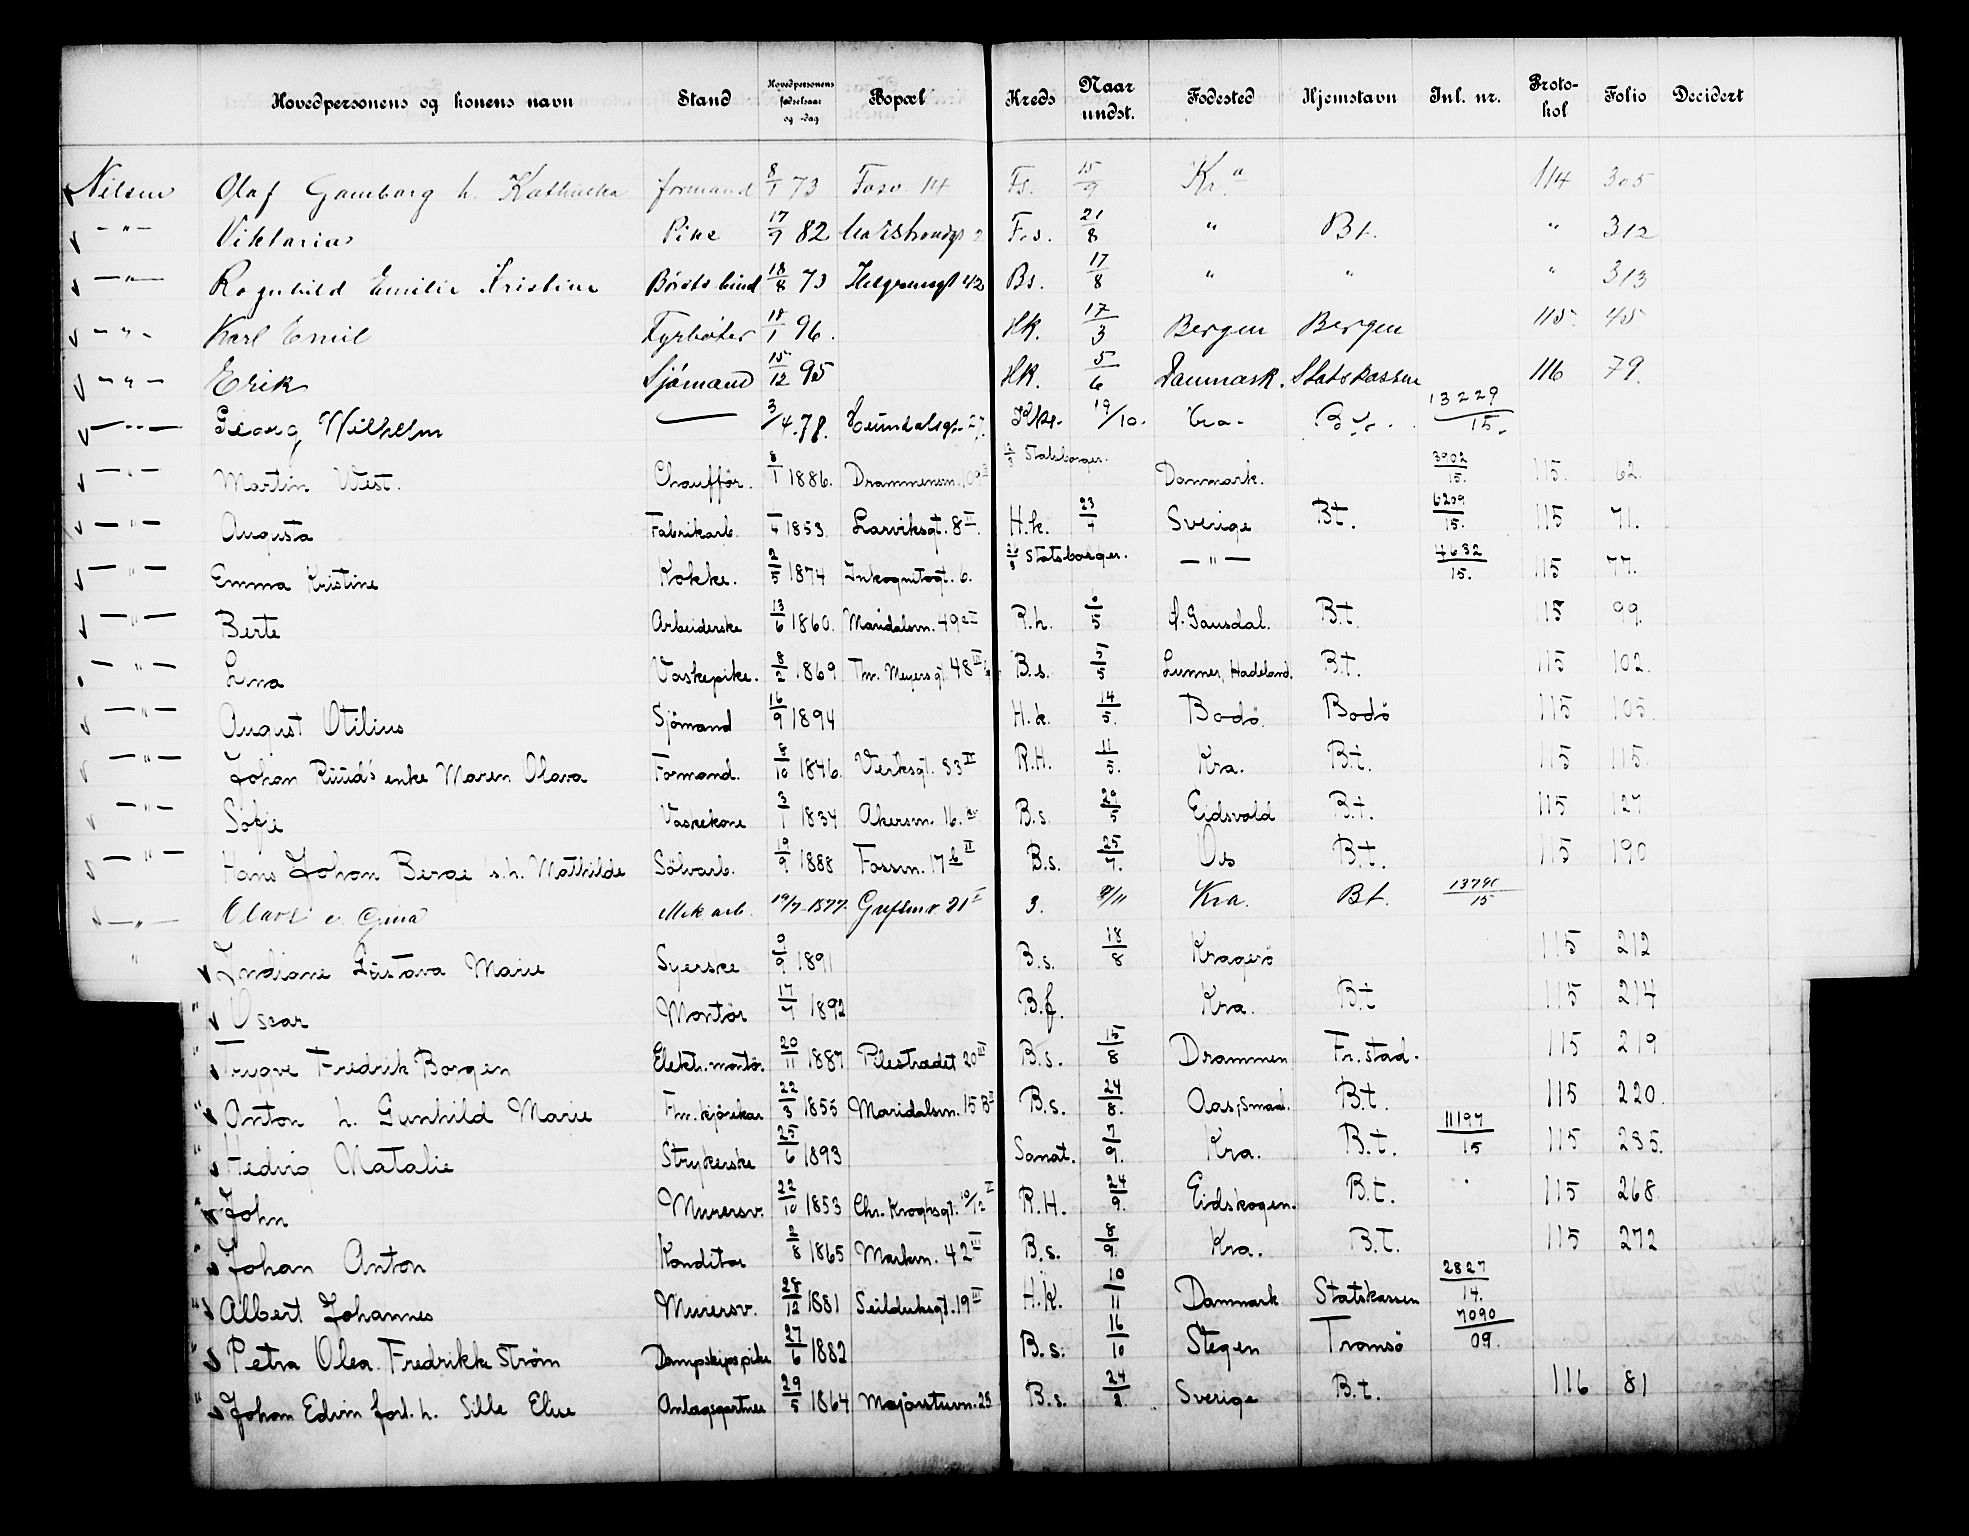 Hovedpersonens og konens navn Stand Hovedpersonens fødselsaar og -dag Bopæl Kreds Naar undst. Fødested Hjemstavn Inl. nr. Protokol Folio Decidert
Nilsen Olaf Gamborg h. Kathinka formand 8/1 73 Fosv. 14 Fs. 15/9 Kr.a 114 305
— " — Viktorius Pike 17/9 82 F.s. 21/8 " Bt. " 312
— " — Ragnhild Emilie Kristine Börstebind 18/8 73 Helgesensgt 42 Bs. 17/8 " " " 313
— " — Karl Emil Fyrböter 18/1 96. Hk. 17/3 Bergen Bergen 115. 45
— " — Erik Sjömand 15/12 95 Hk. 5/6 Danmark. Statskassen 116 79.
— " — Georg Wilhelm — 3/4.78. 27. 19/10. Kra. 13229/15.
— " — Martin West. Chauffør. 8/1 1886. Drammensv. Statsborger. Danmark. 3902/15. 115. 62.
— " — Augusta Fabrikarb. 1853. Larviksgt. 8 II. H.k. 23/4 Sverige Bt. 6209/15. 115 71.
— " — Emma Kristine Kokke. 2/5 1874 Inkognitogt. 6. Statsborger. — " — 4632/15. 115 77.
— " — Berte Arbeiderske 13/6 1860. Maridalsv. 49 R.h. 6/5 Gausdal. B.t. 115 99.
— " — Lina Vaskepike. 8/2 1869 Thv. Meyersgt. 48 B.s. 5/5 Lunner, Hadeland. B.t. 115 102.
— " — August Otilius Sjömand 16/9 1894 H.k. 14/5. Bodö. Bodö 115 105.
— " — Johan Ruud's enke Maren Olava Formand. 8/10 1846. Verksgt. 33 II R.H. 11/5. Kra. B.t. 115 115.
— " — Sofie Vaskekone 3/1 1834 Akersv. 16. B.s. 29/5 Eidsvold B.t. 115 127
— " — Hans Johan Berge s.h. Mathilde Sölvarb. 19/9 1888 Fossv. 17 b II B.s. 25/7. Os B.t. 115 190
— " — Olaus e. Gina Mek. arb. 19/7 1877. Grefsenv 21 I 3. 9/11 Kra. Bt.
" Indiane Gustava Marie Syerske 9/9 1891 B.s. 18/8 Kragerö 115 212
" Oscar Montör 17/7 1892 B.f. Kra. B.t 115 214
" Trygve Fredrik Borgen Elektr. montör. 20/11 1887 Pilestrædet 20 III B.s. 15/8 Drammen Fr.stad. 115 219
" Anton h. Gunhild Marie Fm. kjörekar 22/3 1855 Maridalsv. 15 B II B.s. 24/8. Aas, Smaal. B.t. 115 220.
" Hedvig Natalie Strykerske 25/6 1893 Sanat. 7/9. Kra. B.t. 11197/15 115 235.
" John Murersv. 22/10 1853 Chr. Kroghsgt. 10/12 R.H. 24/9. Eidskogen. B.t. 115 268.
" Johan Anton Konditor 2/8 1865 Markv. 42 III B.s. 8/9. Kra. B.t. 115 272
" Albert Johannes Murersv. 28/12 1881 Seilduksgt. 19 III H.K. 10/11 Danmark Statskassen 2827/14.
" Petra Olea Fredrikke Ström Dampskipspike 27/6 1882 B.s. 16/10 Stegen Tromsö 7090/09.
" Johan Edvin forl. h. Sille Elise Anlægsgartner 29/5 1864 Majorstuvn. 25 B.s. 24/2. Sverige B.t. 116 81